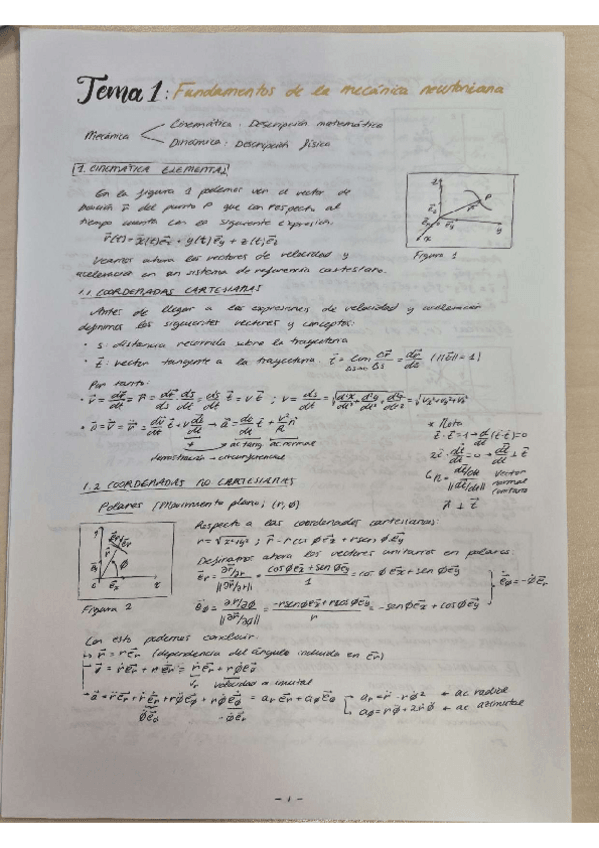 Tema 1: Fundamentos de la mecánica newtoniana
Mecánica
Cinemática: Descripción matemática
Dinámica: Descripción física
1. CINEMÁTICA ELEMENTAL
En la figura 1 podemos ver el vector de
posición r⃗ del punto P que con respecto al
tiempo cuenta con la siguiente expresión:
r⃗(t) = x(t)e⃗x + y(t)e⃗y + z(t)e⃗z
Figura 1
Veamos ahora los vectores de velocidad y
aceleración en un sistema de referencia cartesiano.
1.1 COORDENADAS CARTESIANAS
Antes de llegar a las expresiones de velocidad y aceleración
definimos los siguientes vectores y conceptos:
· s: distancia recorrida sobre la trayectoria
· t⃗: vector tangente a la trayectoria. t⃗ = lim Δs→0 Δr⃗/Δs = dr⃗/ds (||t⃗|| = 1)
Por tanto:
· v⃗ = dr⃗/dt = dr⃗/ds ds/dt = ds/dt t⃗ = v t⃗ ; v = ds/dt
= √vx²+vy²+vz²
→ a⃗ = dv/dt t⃗ + v²/R n⃗
ac tang. ac normal
* Nota
t⃗·t⃗ = 1 → d/dt (t⃗·t⃗) = 0
vector
normal
unitario
n⃗ ⊥ t⃗
1.2 COORDENADAS NO CARTESIANAS
Polares [Movimiento plano; (r, φ)
Figura 2
Respecto a las coordenadas cartesianas:
r = √x²+y² ; r⃗ = r cos φ e⃗x + r sen φ e⃗y
Definimos ahora los vectores unitarios en polares:
e⃗r = ∂r⃗/∂r / ||∂r⃗/∂r|| = cos φ e⃗x + sen φ e⃗y / 1 = cos φ e⃗x + sen φ e⃗y
= -r sen φ e⃗x + r cos φ e⃗y / r = -sen φ e⃗x + cos φ e⃗y
Con esto podemos concluir:
r⃗ = r e⃗r (dependencia del ángulo incluida en e⃗r)
velocidad azimutal
= ar e⃗r + aφ e⃗φ
ar = r̈ - rφ̇² ← ac radial
aφ = rφ̈ + 2ṙφ̇ ← ac azimutal
- 1 -